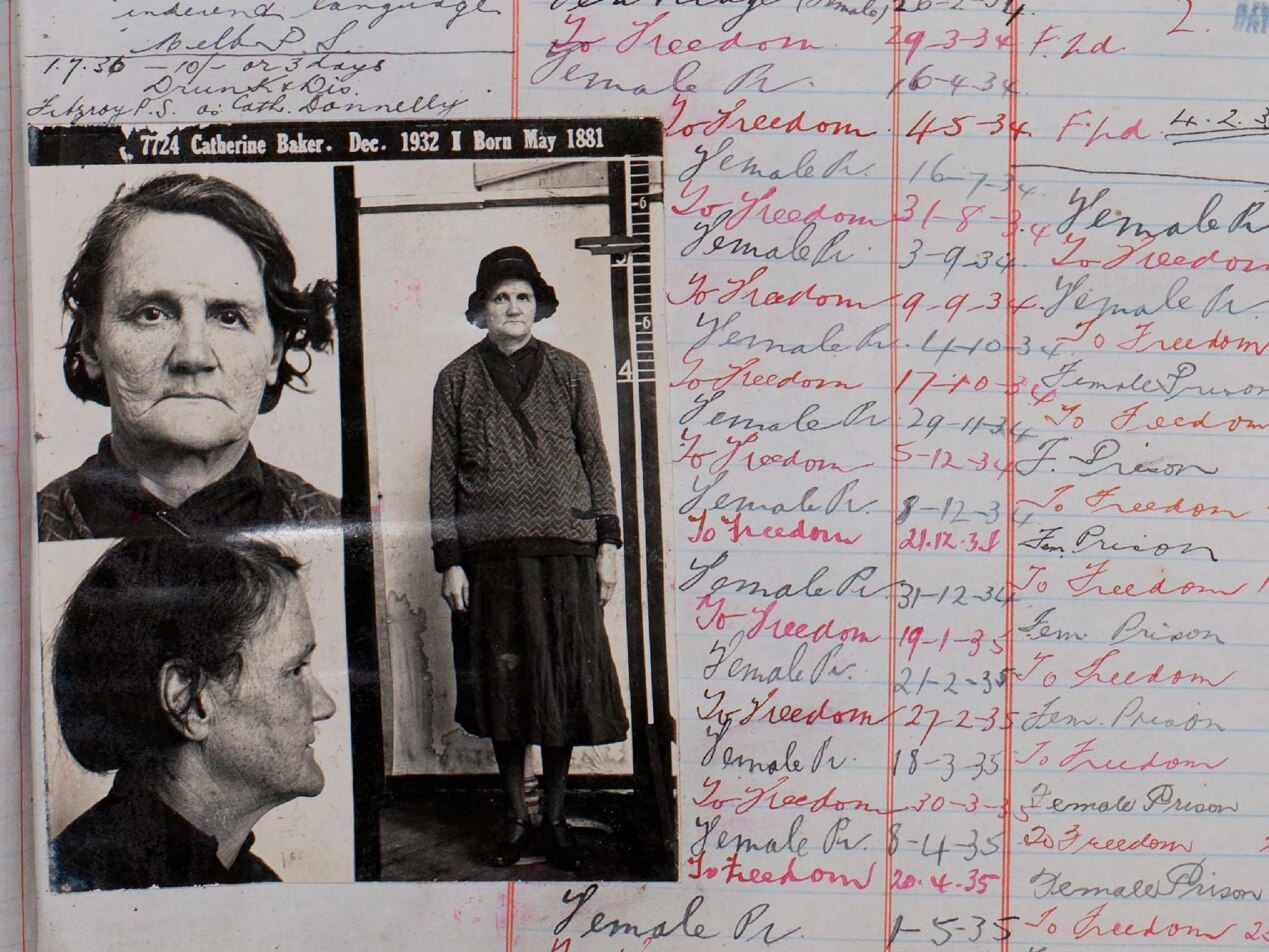 indecent language
Melb P. S.
1.7.36 - 10/- or 3 days
Drunk & Dis.
Fitzroy P.S. as Cath. Donnelly
7724 Catherine Baker. Dec. 1932 I Born May 1881
6
5
6
4
(Female) 26-2-34.
To Freedom. 29-3-34 F.pd. 2.
Female Pr. 16-4-34.
To Freedom. 4-5-34. F.pd. 4.2.3
Female Pr. 16-7-34.
To Freedom 31-8-34 Female Pr
Female Pr 3-9-34. To Freedom
To Freedom 9-9-34. Female Pr.
Female Pr. 4-10-34. To Freedom
To Freedom 17-10-34 Female Prison
Female Pr 29-11-34 To Freedom
To Freedom 5-12-34 F. Prison
Female Pr. 8-12-34 To Freedom
To Freedom 21.12.34 Fem. Prison
Female Pr 31-12-34 To Freedom
To Freedom 19-1-35 Fem. Prison
Female Pr. 21-2-35 To Freedom
To Freedom 27-2-35 Fem. Prison
Female Pr. 18-3-35 To Freedom
To Freedom 30-3-35 Female Prison
Female Pr. 8-4-35 To Freedom
To Freedom 20.4.35 Female Prison
Female Pr. 1-5-35 To Freedom